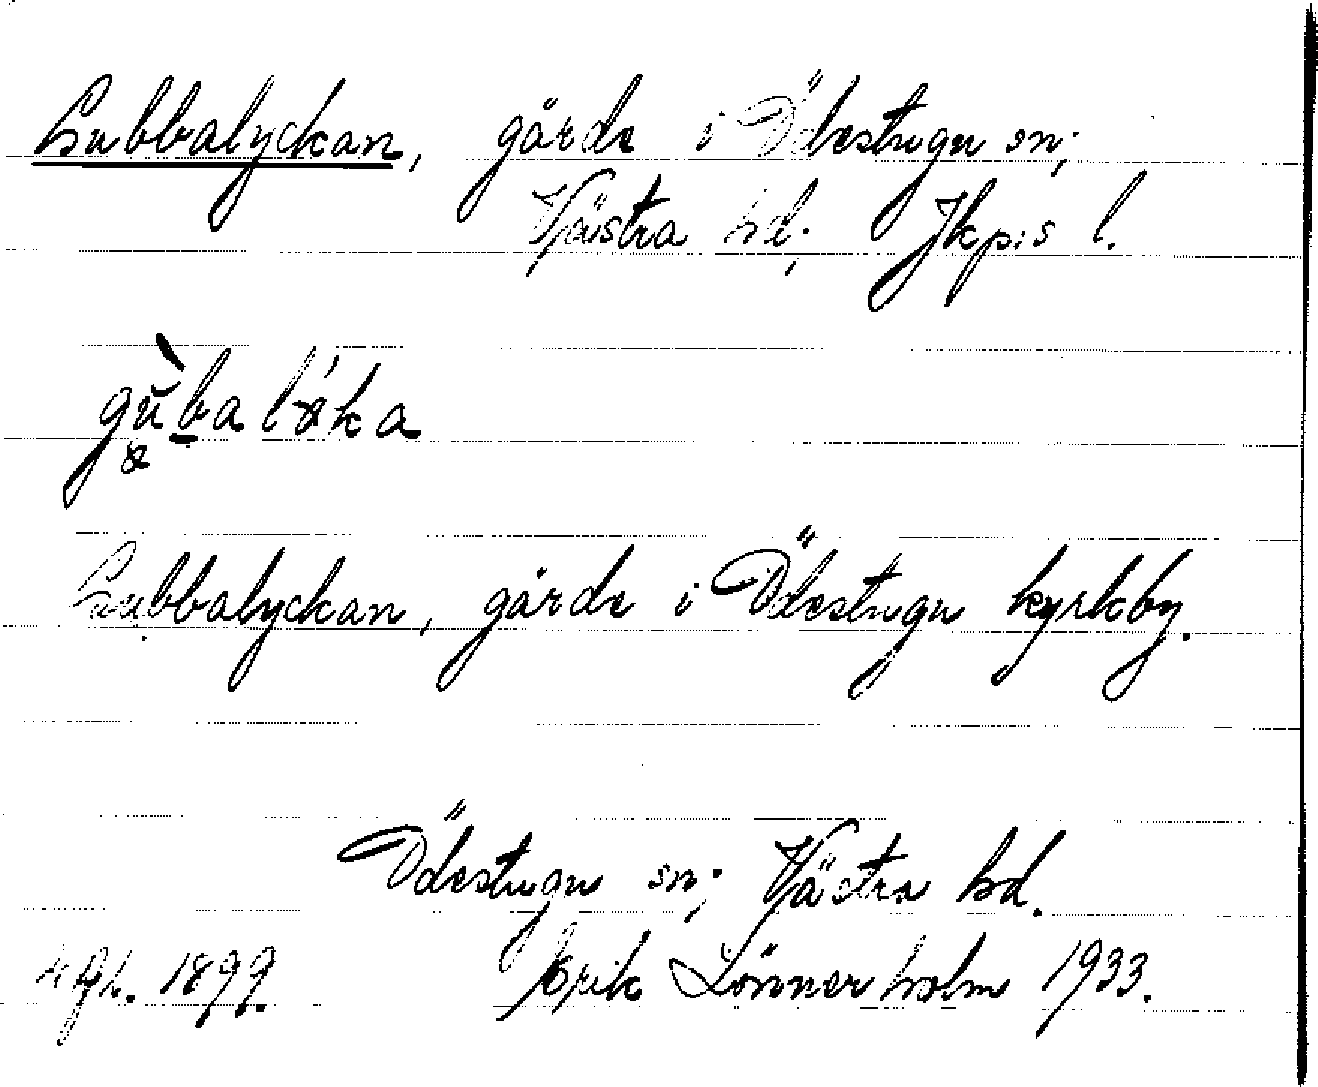 Gubbalyckan, gärde i Ödestugu sn;
Västra hd; Jkp:s l.
Gubbalyckan, gärde i Ödestugu kyrkby.
Ödestugu sn; Västra hd.
1899. Erik Lönnerholm 1933.